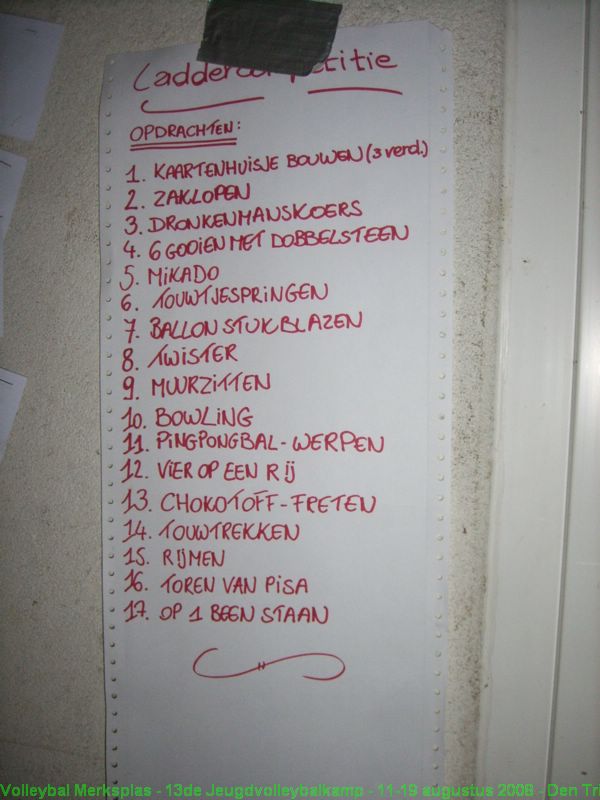 Laddercompetitie
OPDRACHTEN:
1. KAARTENHUISJE BOUWEN (3 verd.)
2. ZAKLOPEN
3. DRONKENMANSKOERS
4. 6 GOOIEN MET DOBBELSTEEN
5. MIKADO
6. TOUWTJESPRINGEN
7. BALLON STUKBLAZEN
8. TWISTER
9. MUURZITTEN
10. BOWLING
11. PINGPONGBAL-WERPEN
12. VIER OP EEN RIJ
13. CHOKOTOFF-FRETEN
14. TOUWTREKKEN
15. RIJMEN
16. TOREN VAN PISA
17. OP 1 BEEN STAAN
Volleybal Merksplas - 13de Jeugdvolleybalkamp - 11-19 augustus 2008 - Den Tri